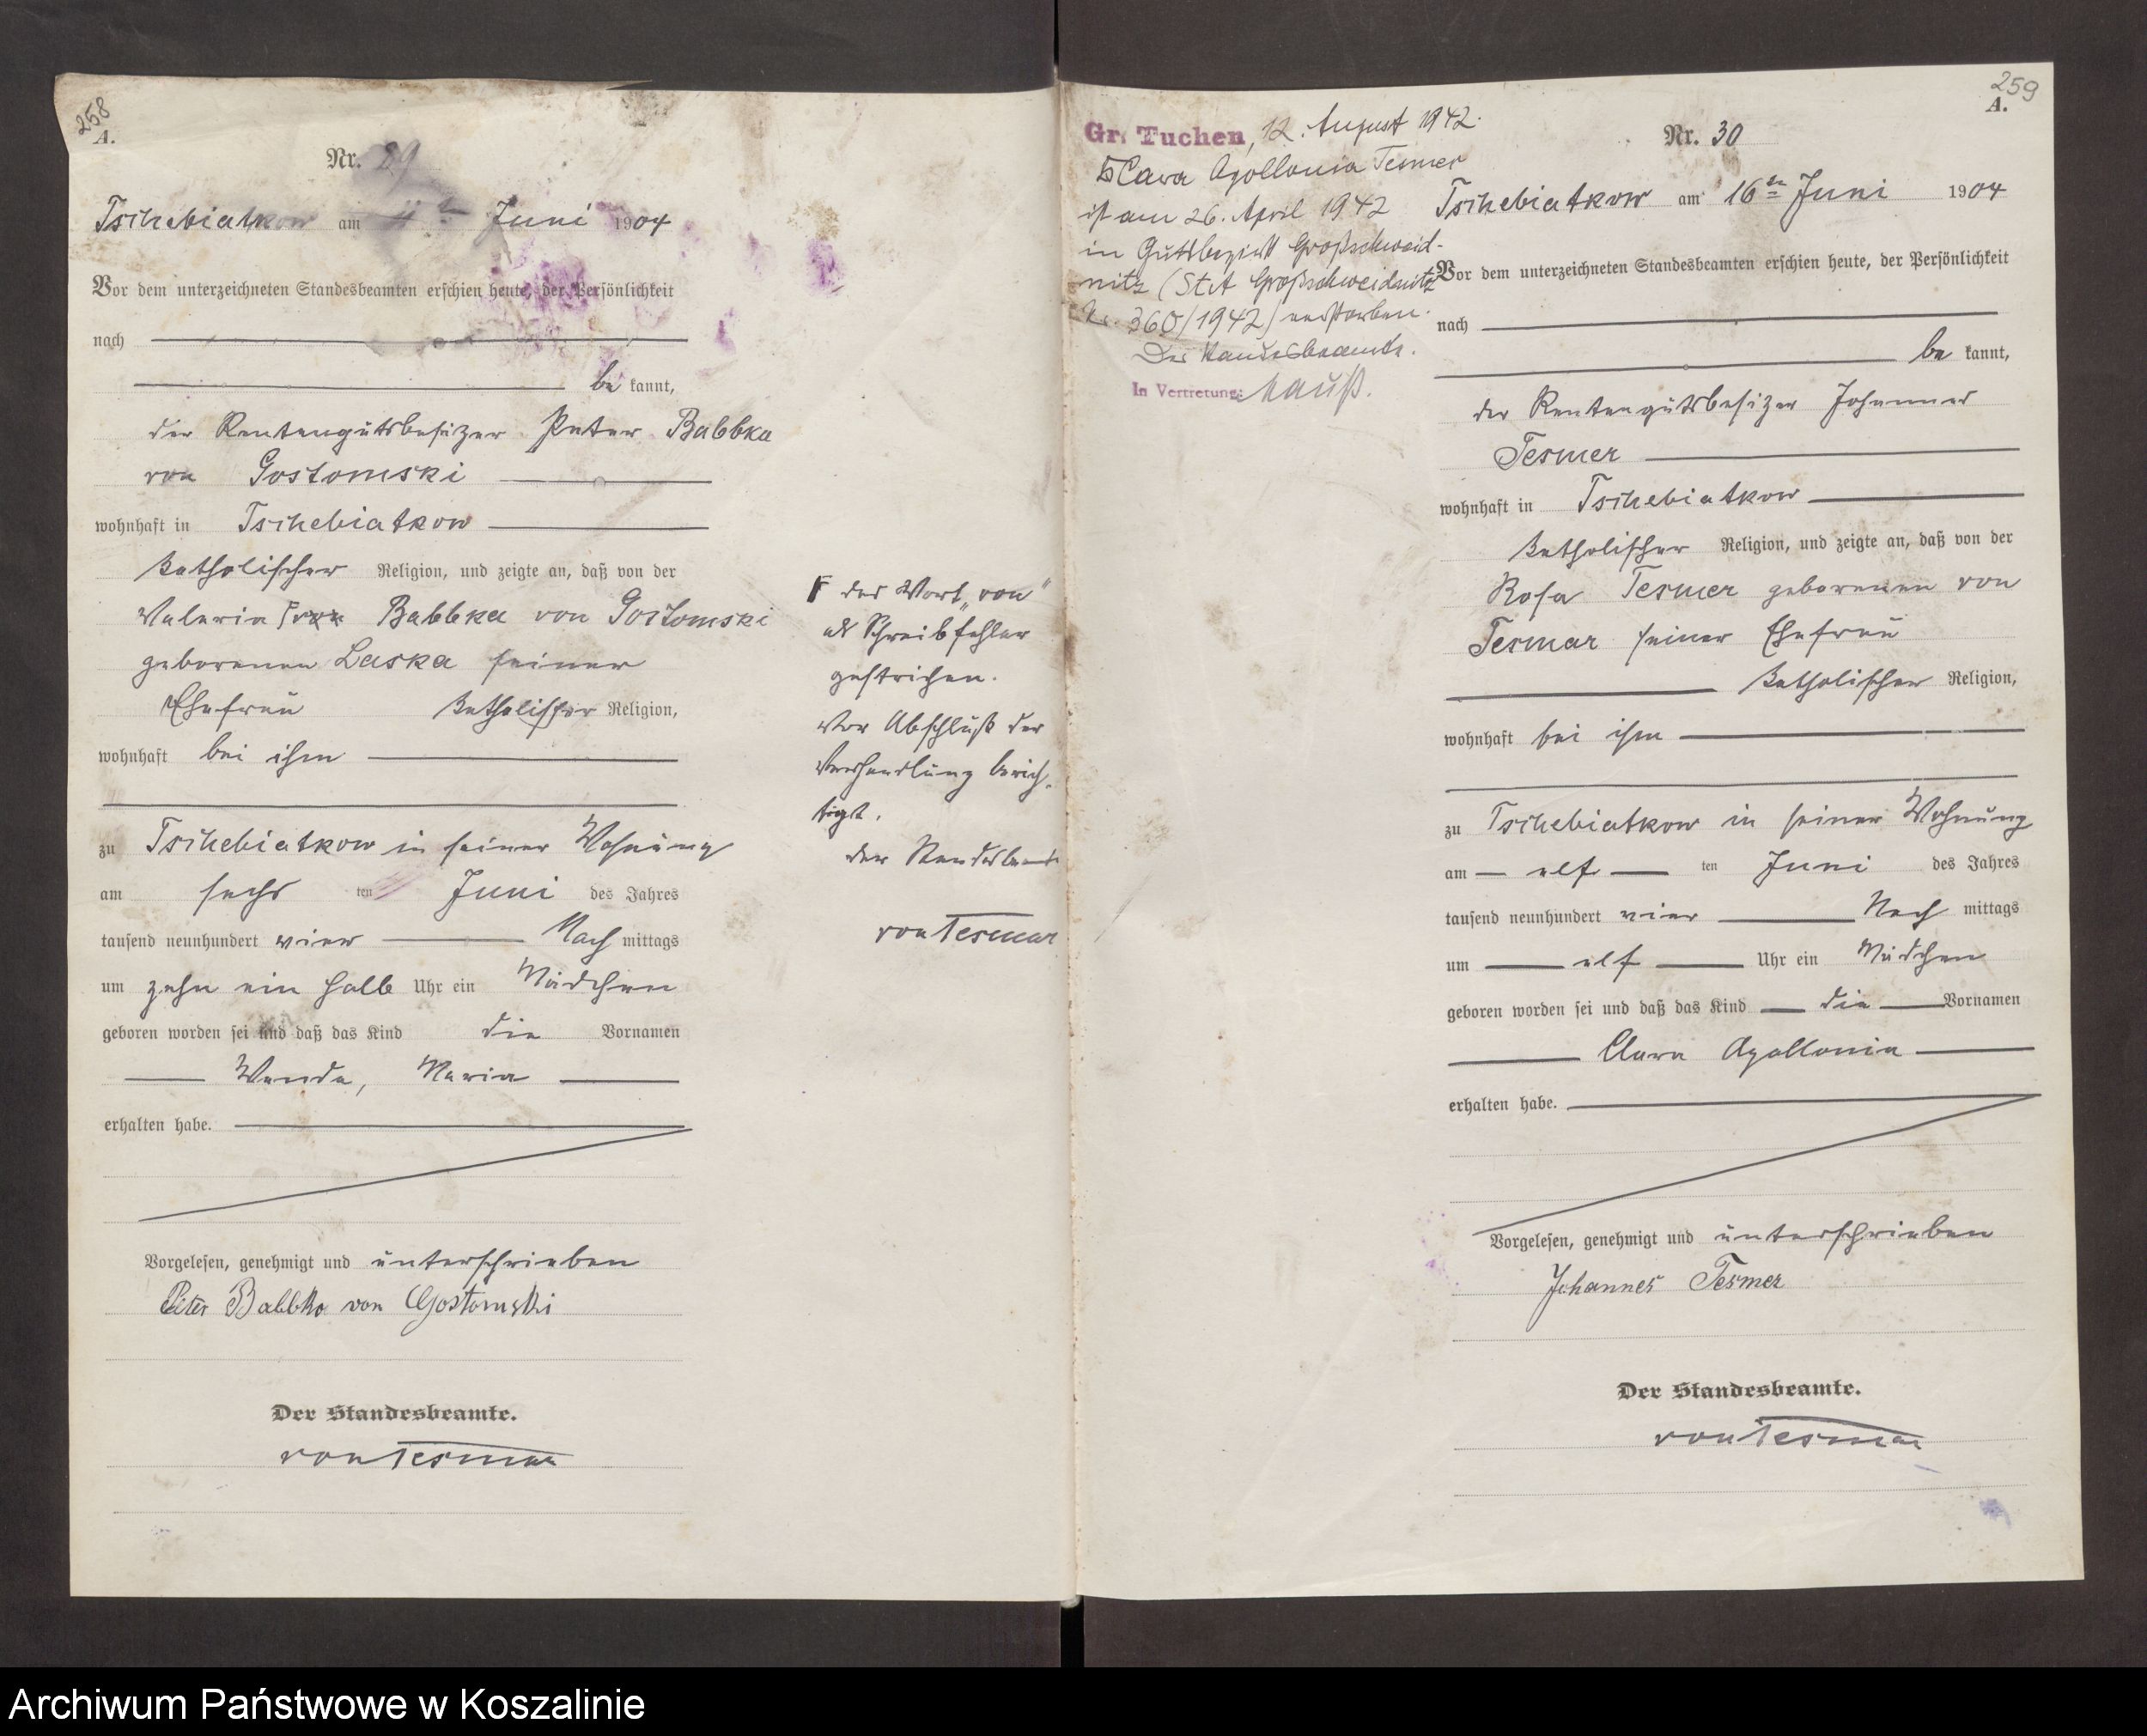 258
A.
Nr. 29
Tschebiatkow am Juni 1904
Vor dem unterzeichneten Standesbeamten erschien heute, der Persönlichkeit
nach
be kannt,
der Rentengutsbesitzer Peter Babbka
von Gostomski
wohnhaft in Tschebiatkow
katholischer Religion, und zeigte an, daß von der
Valeria von Babbka von Gostomski
geborenen Laska seiner
Ehefrau katholischer Religion,
wohnhaft bei ihm
zu Tschebiatkow in seiner Wohnung
am sechs ten Juni des Jahres
tausend neunhundert vier Nach mittags
um zehn ein halb Uhr ein Mädchen
geboren worden sei und daß das Kind die Vornamen
Wanda, Maria
erhalten habe.
Vorgelesen, genehmigt und unterschrieben
Peter Babbka von Gostomski
Der Standesbeamte.
von Tesmar
das Wort „von“
als Schreibfehler
gestrichen.
Vor Abschluß der
Verhandlung berich-
tigt.
Der Standesbeamte
von Tesmar
259
A.
Gr. Tuchen, 12. August 1942.
Clara Apollonia Tesmer
ist am 26. April 1942
in Gutsbezirk Großschweid-
nitz (StA Großschweidnitz
Nr. 360/1942) verstorben.
Der Standesbeamte.
In Vertretung:
Nr. 30
Tschebiatkow am 16ten Juni 1904
Vor dem unterzeichneten Standesbeamten erschien heute, der Persönlichkeit
nach
be kannt,
der Rentengutsbesitzer Johannes
Tesmer
wohnhaft in Tschebiatkow
katholischer Religion, und zeigte an, daß von der
Rosa Tesmer geborenen von
Tesmar seiner Ehefrau
katholischer Religion,
wohnhaft bei ihm
zu Tschebiatkow in seiner Wohnung
am elf ten Juni des Jahres
tausend neunhundert vier Nach mittags
um elf Uhr ein Mädchen
geboren worden sei und daß das Kind die Vornamen
Clara Apollonia
erhalten habe.
Vorgelesen, genehmigt und unterschrieben
Johannes Tesmer
Der Standesbeamte.
von Tesmar
Archiwum Państwowe w Koszalinie